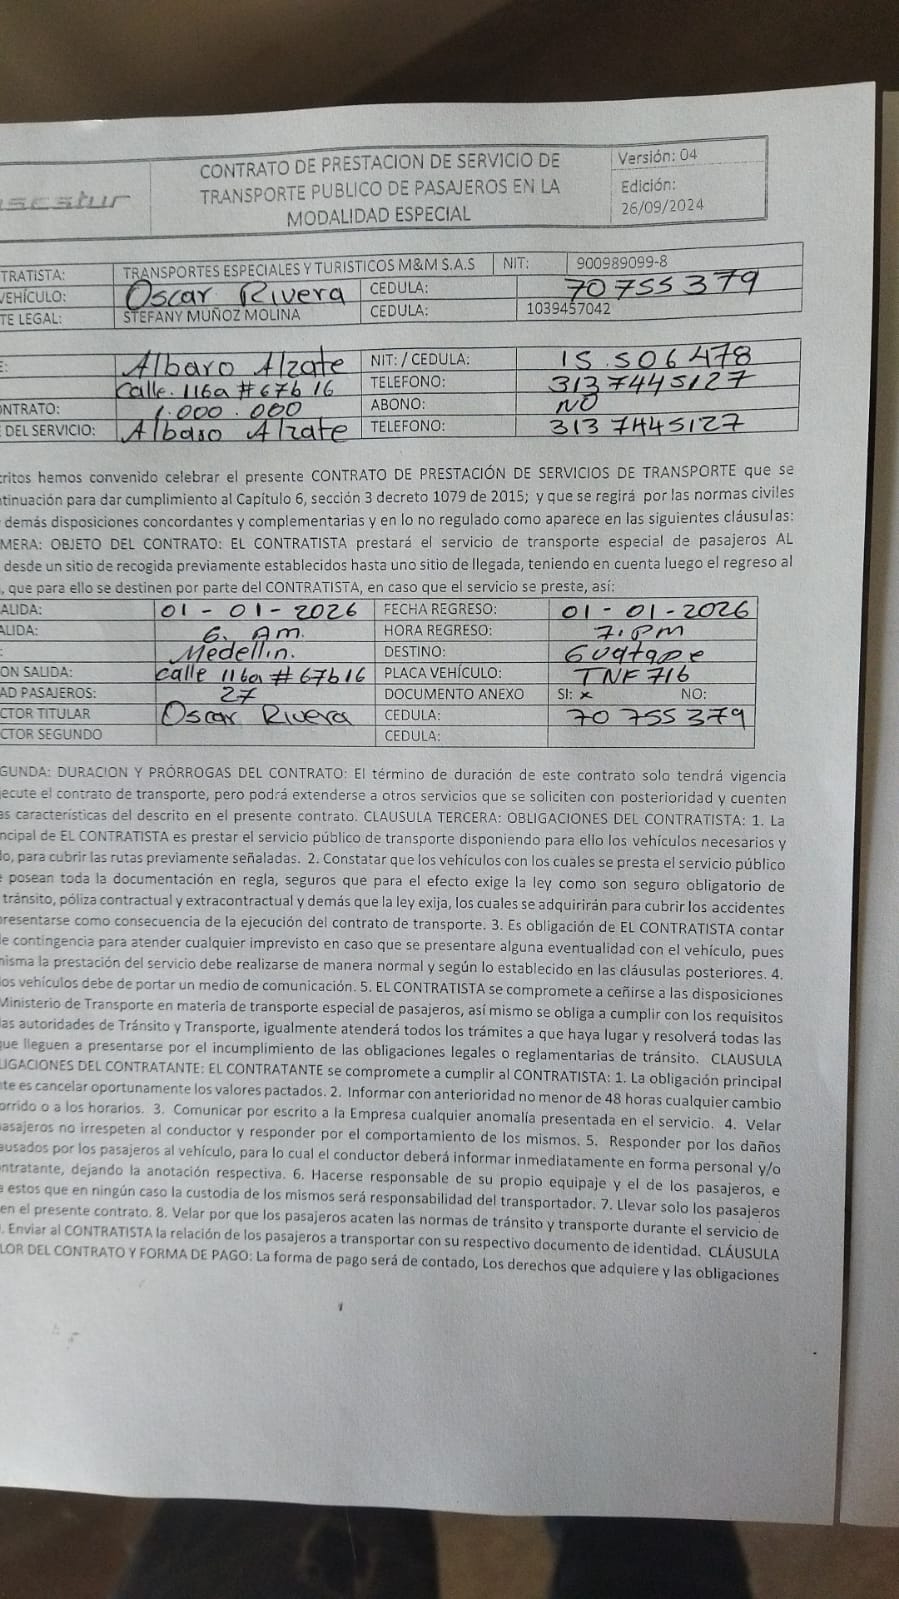 CONTRATO DE PRESTACION DE SERVICIO DE
TRANSPORTE PUBLICO DE PASAJEROS EN LA
MODALIDAD ESPECIAL
Versión: 04
Edición:
26/09/2024
TRATISTA: TRANSPORTES ESPECIALES Y TURISTICOS M&M S.A.S NIT: 900989099-8
VEHÍCULO: Oscar Rivera CEDULA: 70755379
TE LEGAL: STEFANY MUÑOZ MOLINA CEDULA: 1039457042
E: Albaro Alzate NIT: / CEDULA: 15.506478
Calle. 116a # 67b 16 TELEFONO: 313 7445127
ONTRATO: 1.000.000 ABONO: NO
DEL SERVICIO: Albaro Alzate TELEFONO: 313 7445127
critos hemos convenido celebrar el presente CONTRATO DE PRESTACIÓN DE SERVICIOS DE TRANSPORTE que se
ntinuación para dar cumplimiento al Capítulo 6, sección 3 decreto 1079 de 2015; y que se regirá por las normas civiles
demás disposiciones concordantes y complementarias y en lo no regulado como aparece en las siguientes cláusulas:
MERA: OBJETO DEL CONTRATO: EL CONTRATISTA prestará el servicio de transporte especial de pasajeros AL
desde un sitio de recogida previamente establecidos hasta uno sitio de llegada, teniendo en cuenta luego el regreso al
, que para ello se destinen por parte del CONTRATISTA, en caso que el servicio se preste, así:
ALIDA: 01-01-2026 FECHA REGRESO: 01-01-2026
ALIDA: 6. Am. HORA REGRESO: 7.Pm
: Medellin. DESTINO: Guatape
ON SALIDA: calle 116a # 67b16 PLACA VEHÍCULO: TNF716
AD PASAJEROS: 27 DOCUMENTO ANEXO SI: x NO:
CTOR TITULAR Oscar Rivera CEDULA: 70755379
CTOR SEGUNDO CEDULA:
GUNDA: DURACION Y PRÓRROGAS DEL CONTRATO: El término de duración de este contrato solo tendrá vigencia
jecute el contrato de transporte, pero podrá extenderse a otros servicios que se soliciten con posterioridad y cuenten
as características del descrito en el presente contrato. CLAUSULA TERCERA: OBLIGACIONES DEL CONTRATISTA: 1. La
ncipal de EL CONTRATISTA es prestar el servicio público de transporte disponiendo para ello los vehículos necesarios y
do, para cubrir las rutas previamente señaladas. 2. Constatar que los vehículos con los cuales se presta el servicio público
e posean toda la documentación en regla, seguros que para el efecto exige la ley como son seguro obligatorio de
tránsito, póliza contractual y extracontractual y demás que la ley exija, los cuales se adquirirán para cubrir los accidentes
presentarse como consecuencia de la ejecución del contrato de transporte. 3. Es obligación de EL CONTRATISTA contar
de contingencia para atender cualquier imprevisto en caso que se presentare alguna eventualidad con el vehículo, pues
misma la prestación del servicio debe realizarse de manera normal y según lo establecido en las cláusulas posteriores. 4.
los vehículos debe de portar un medio de comunicación. 5. EL CONTRATISTA se compromete a ceñirse a las disposiciones
Ministerio de Transporte en materia de transporte especial de pasajeros, así mismo se obliga a cumplir con los requisitos
las autoridades de Tránsito y Transporte, igualmente atenderá todos los trámites a que haya lugar y resolverá todas las
que lleguen a presentarse por el incumplimiento de las obligaciones legales o reglamentarias de tránsito. CLAUSULA
LIGACIONES DEL CONTRATANTE: EL CONTRATANTE se compromete a cumplir al CONTRATISTA: 1. La obligación principal
nte es cancelar oportunamente los valores pactados. 2. Informar con anterioridad no menor de 48 horas cualquier cambio
orrido o a los horarios. 3. Comunicar por escrito a la Empresa cualquier anomalía presentada en el servicio. 4. Velar
pasajeros no irrespeten al conductor y responder por el comportamiento de los mismos. 5. Responder por los daños
ausados por los pasajeros al vehículo, para lo cual el conductor deberá informar inmediatamente en forma personal y/o
ontratante, dejando la anotación respectiva. 6. Hacerse responsable de su propio equipaje y el de los pasajeros, e
a estos que en ningún caso la custodia de los mismos será responsabilidad del transportador. 7. Llevar solo los pasajeros
en el presente contrato. 8. Velar por que los pasajeros acaten las normas de tránsito y transporte durante el servicio de
. Enviar al CONTRATISTA la relación de los pasajeros a transportar con su respectivo documento de identidad. CLÁUSULA
LOR DEL CONTRATO Y FORMA DE PAGO: La forma de pago será de contado, Los derechos que adquiere y las obligaciones